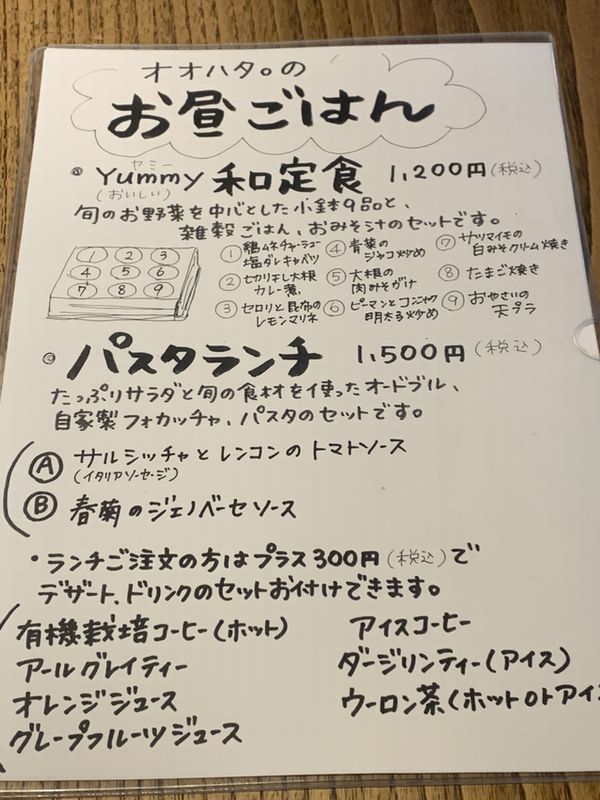 オオハタ。の
お昼ごはん
Yummy 和定食 1,200円(税込)
ヤミー
(おいしい)
旬のお野菜を中心とした小鉢9品と、
雑穀ごはん、おみそ汁のセットです。
① ② ③
④ ⑤ ⑥
⑦ ⑧ ⑨
①鶏ムネチャーシュー 塩ダレキャベツ
②切り干し大根 カレー煮
③セロリと昆布の レモンマリネ
④青菜の ジャコ炒め
⑤大根の 肉みそがけ
⑥ピーマンとコンニャク 明太子炒め
⑦サツマイモの 白みそクリーム焼き
⑧たまご焼き
⑨おやさいの 天プラ
パスタランチ 1,500円(税込)
たっぷりサラダと旬の食材を使ったオードブル、
自家製フォカッチャ、パスタのセットです。
Ⓐ サルシッチャとレンコンのトマトソース
(イタリアソーセージ)
Ⓑ 春菊のジェノベーゼソース
・ランチご注文の方はプラス300円(税込)で
デザート、ドリンクのセットお付けできます。
有機栽培コーヒー(ホット) アイスコーヒー
アールグレイティー ダージリンティー(アイス)
オレンジジュース ウーロン茶(ホットorアイ
グレープフルーツジュース